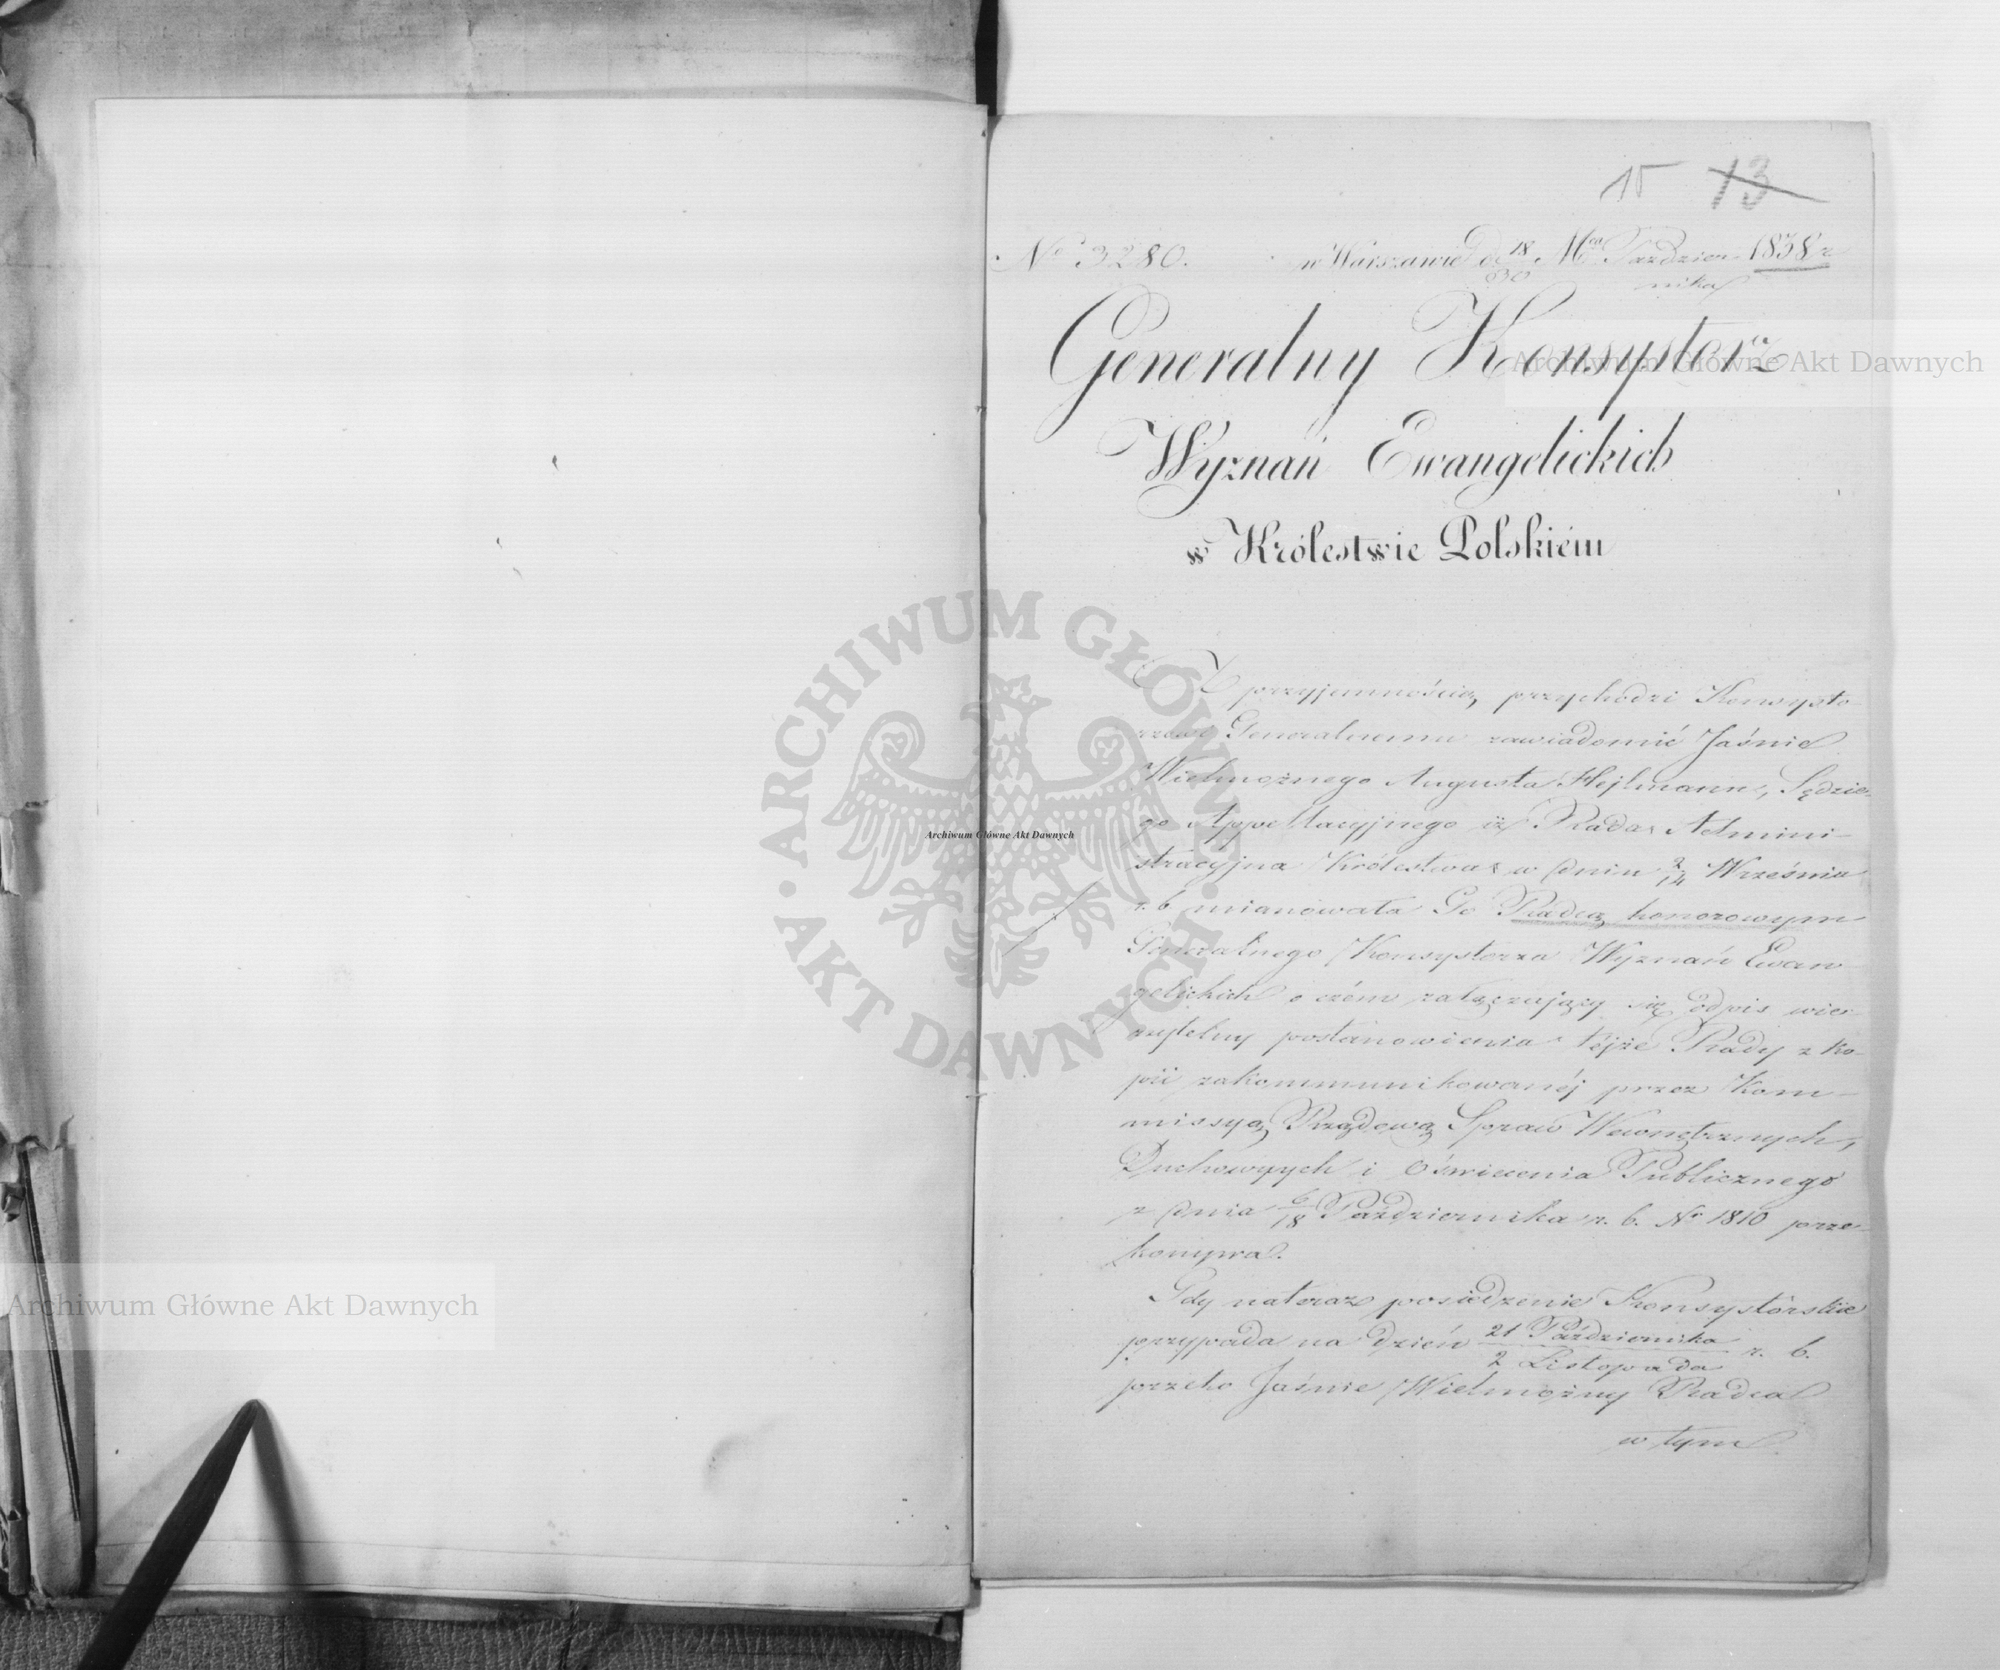 15 13
Nº 3280. w Warszawie d 18/30 Mca Paździer 1838 r
nika
Generalny Konsystorz
Wyznań Ewangelickich
w Królestwie Polskiém
Z przyjemnością przychodzi Konsysto-
rzowi Generalnemu zawiadomić Jaśnie
Wielmożnego Augusta Hejlmann, Sędzie-
go Appellacyjnego iż Rada Admini-
stracyjna Królestwa w dniu 2/14 Września
r. b. mianowała Go Radcą honorowym
Generalnego Konsystorza Wyznań Ewan
gelickich o czém załączający się odpis wier
zytelny postanowienia Tejże Rady z ko-
pii zakommunikowanéj przez Kom-
missyą Rządową Spraw Wewnętrznych,
Duchownych i Oświecenia Publicznego
z dnia 6/18 Października r. b. Nr 1810 prze-
konywa.
Gdy nateraz posiedzenie Konsystorskie
przypada na dzień 21 Października / 2 Listopada r. b.
przeto Jaśnie Wielmożny Radca
w tym
Archiwum Główne Akt Dawnych
Archiwum Główne Akt Dawnych
Archiwum Główne Akt Dawnych
ARCHIWUM GŁÓWNE · AKT DAWNYCH ·